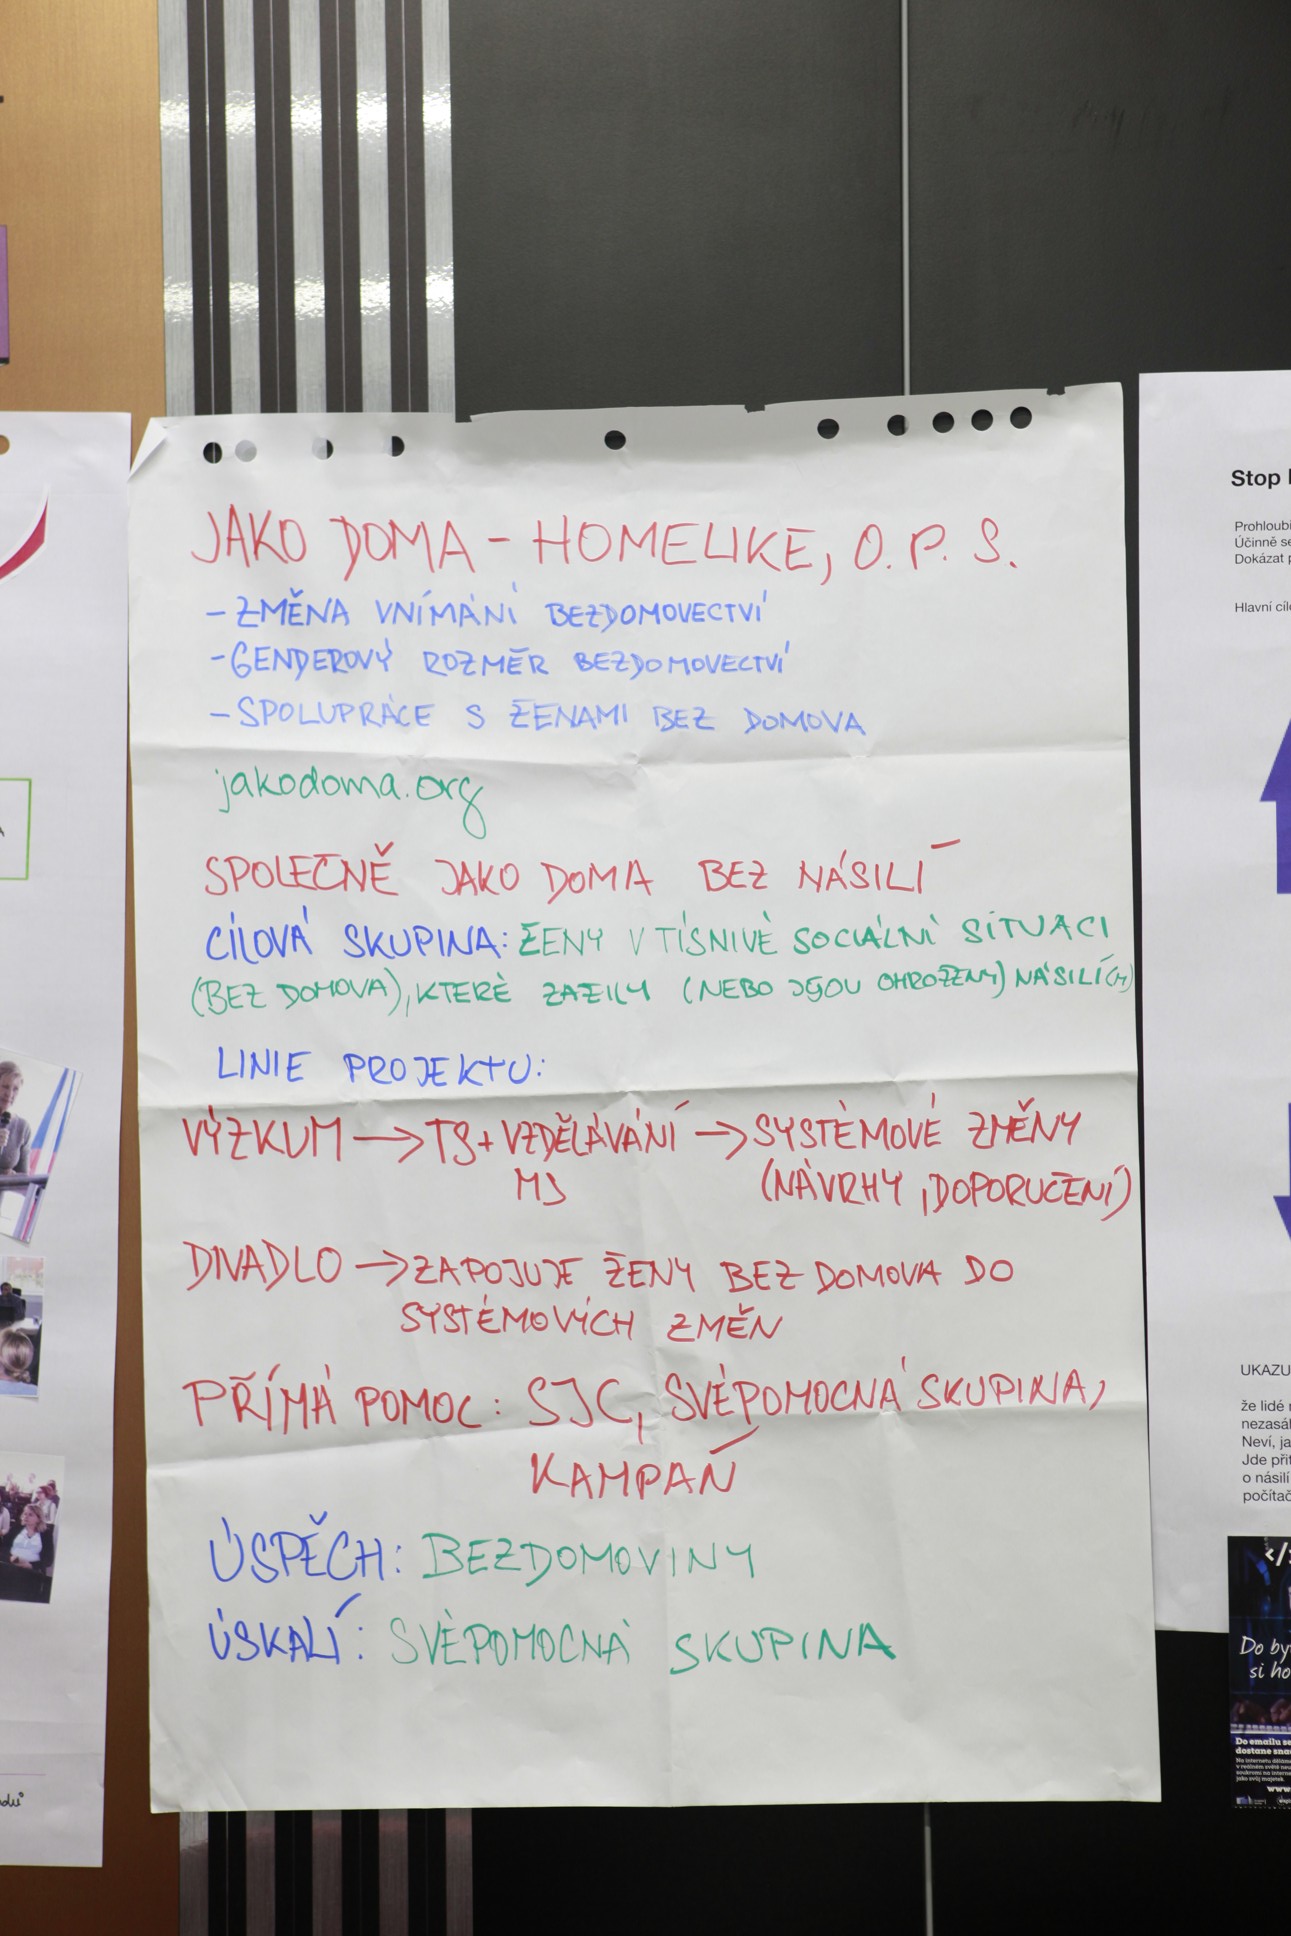 JAKO DOMA - HOMELIKE, O.P.S.
- ZMĚNA VNÍMÁNÍ BEZDOMOVECTVÍ
- GENDEROVÝ ROZMĚR BEZDOMOVECTVÍ
- SPOLUPRÁCE S ŽENAMI BEZ DOMOVA
jakodoma.org
SPOLEČNĚ JAKO DOMA BEZ NÁSILÍ
CÍLOVÁ SKUPINA: ŽENY V TÍSNIVÉ SOCIÁLNÍ SITUACI
(BEZ DOMOVA), KTERÉ ZAŽILY (NEBO JSOU OHROŽENY) NÁSILÍ(M)
LINIE PROJEKTU:
VÝZKUM → TS + VZDĚLÁVÁNÍ → SYSTÉMOVÉ ZMĚNY
MS (NÁVRHY, DOPORUČENÍ)
DIVADLO → ZAPOJUJE ŽENY BEZ DOMOVA DO
SYSTÉMOVÝCH ZMĚN
PŘÍMÁ POMOC: SJC, SVÉPOMOCNÁ SKUPINA,
KAMPAŇ
ÚSPĚCH: BEZDOMOVINY
ÚSKALÍ: SVÉPOMOCNÁ SKUPINA
Stop
Prohloubi
Účinně se
Dokázat p
Hlavní cíl
UKAZU
že lidé
nezasá
Neví, ja
Jde při
o násilí
počítač
Do by
si ho
Do emailu se
dostane sna
www